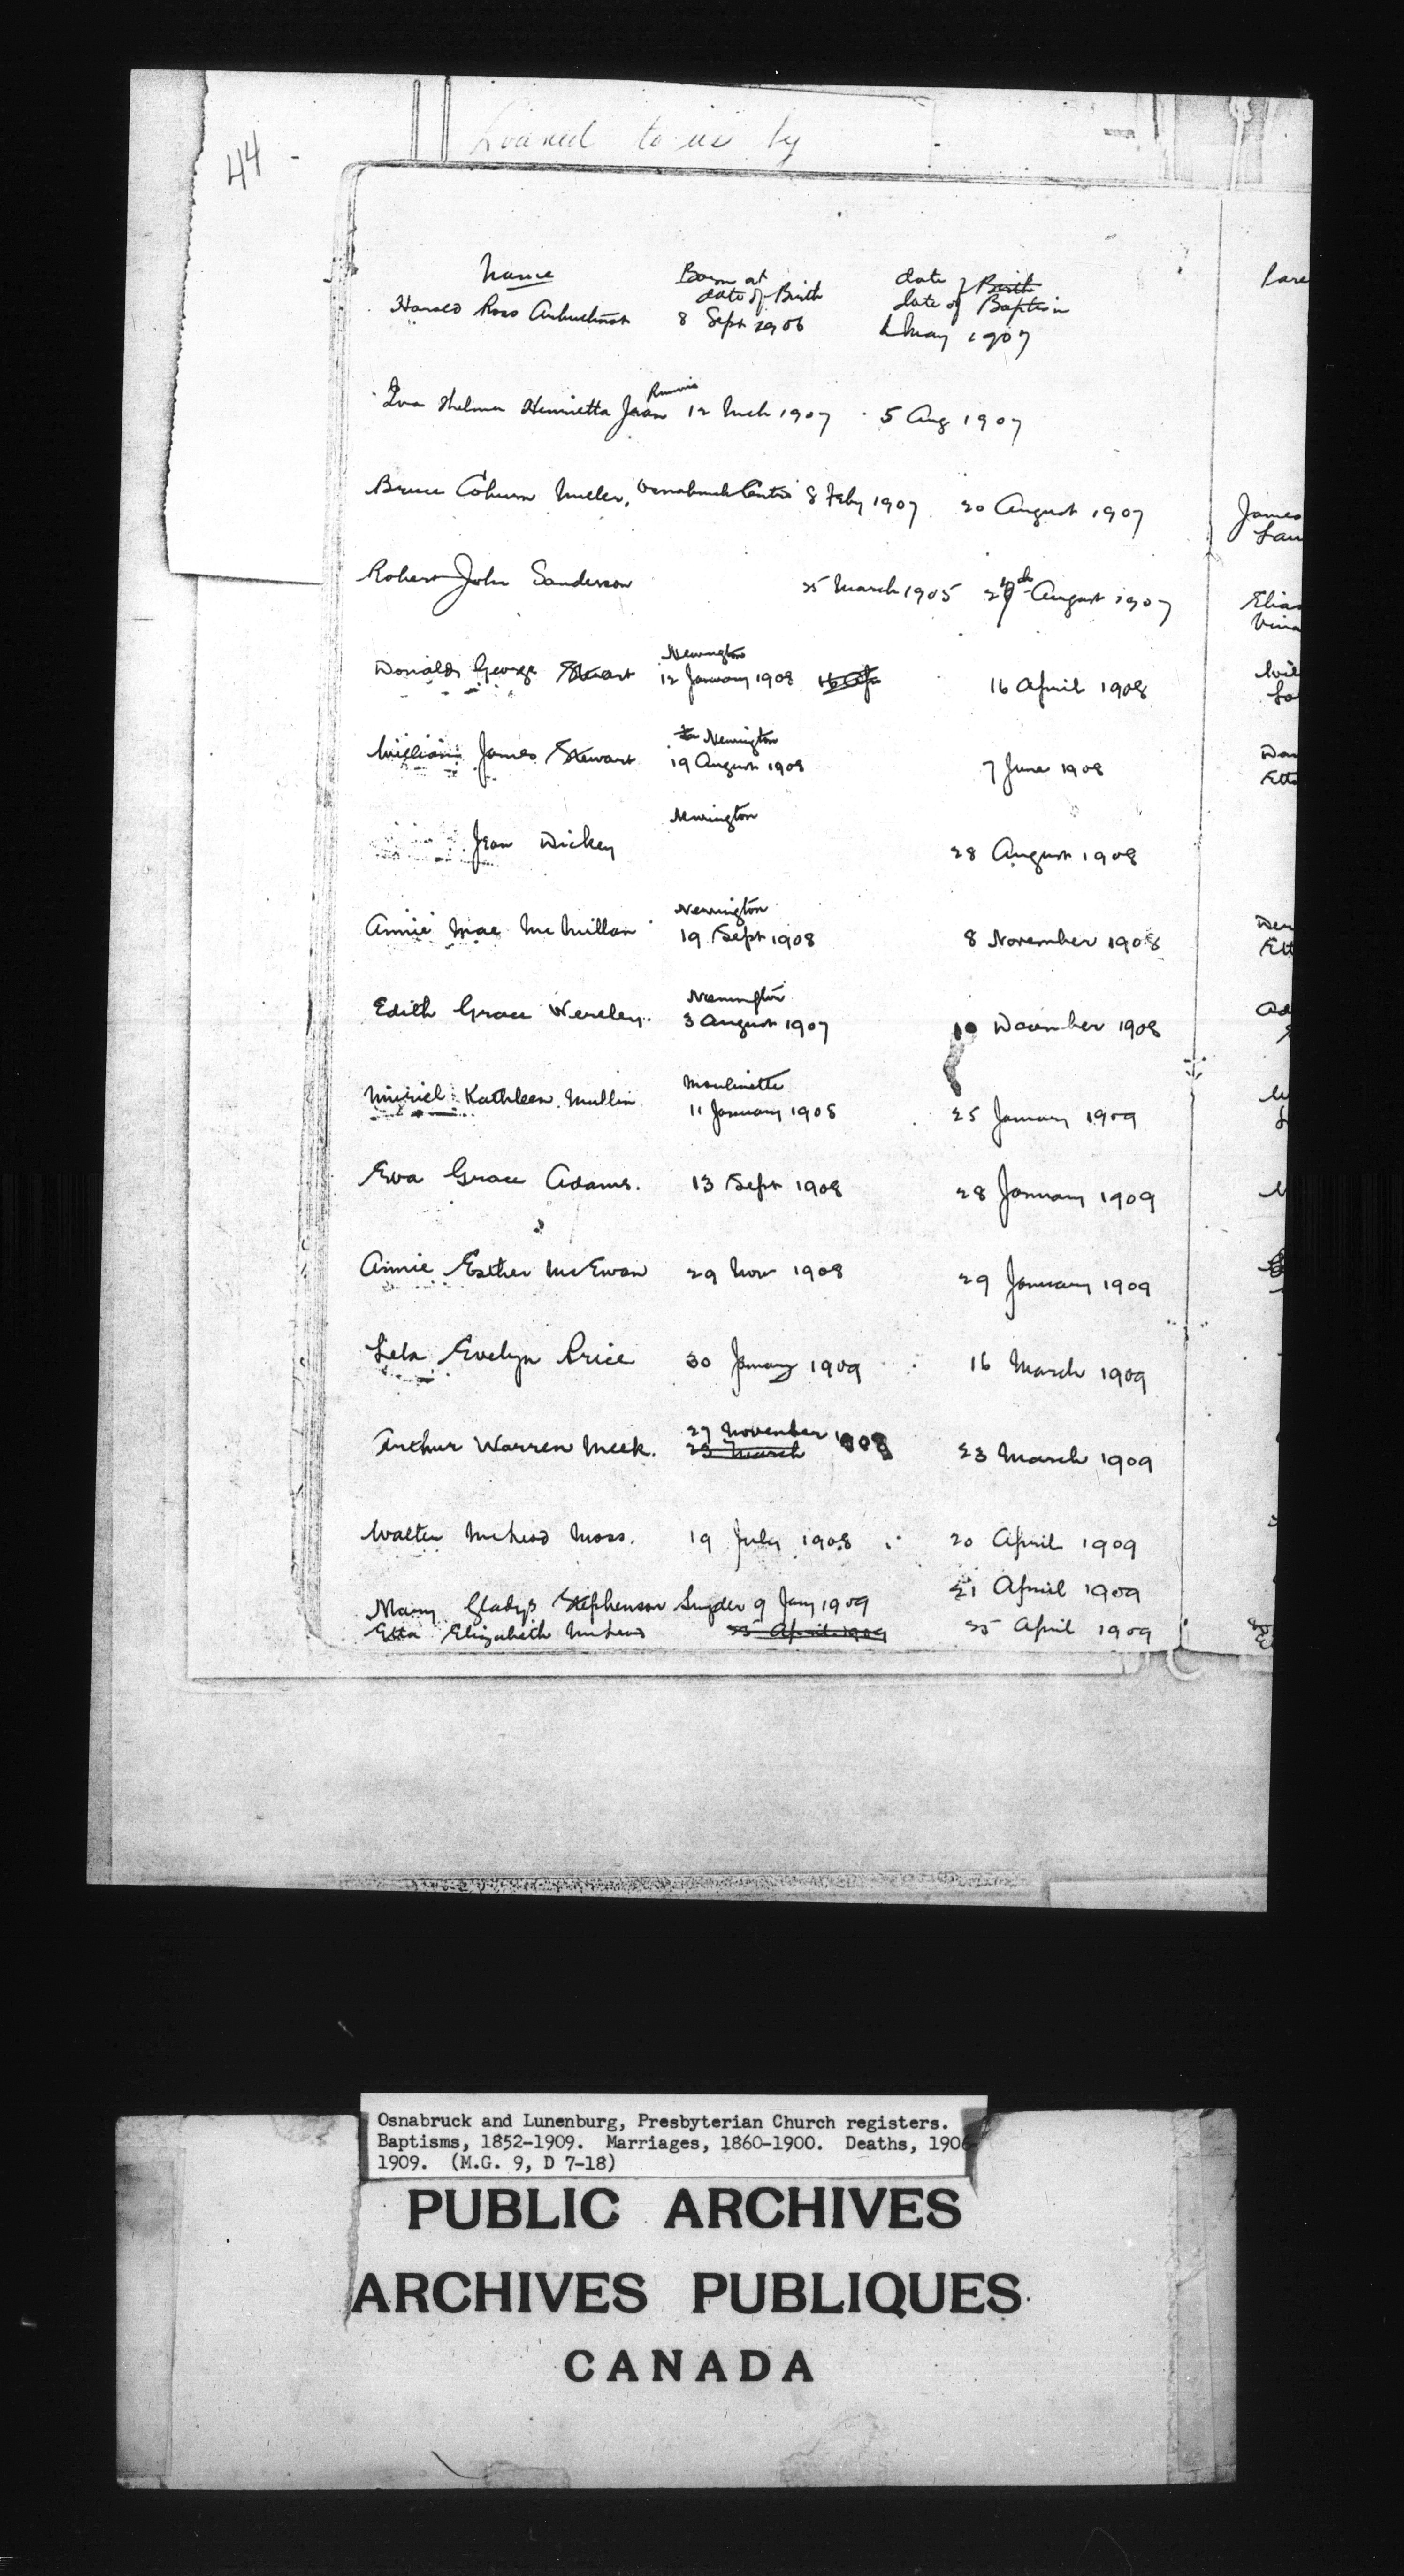 Loaned to us by
44 -
Name Born at date of Birth date of Birth date of Baptism Pare
Harold Ross 8 Sept 1906 1 May 1907
Eva Thelma Henrietta Jean 12 Mch 1907 5 Aug 1907
Bruce Coburn Miller, Osnabruck Centre 8 Feby 1907 20 August 1907 James
Robert John Sanderson 25 March 1905 August 1907 Elias
Newington
Donald George Stewart 12 January 1908 16 Ap 16 April 1908 Wil
Newington
William James Stewart 19 August 1908 7 June 1908
Etta
Newington
Jean Dickey 28 August 1908
Newington
Annie Mae McMillan 19 Sept 1908 8 November 1908
Ett
Newington
Edith Grace Wereley. 3 August 1907 10 December 1908 Ad
Moulinette
Muriel Kathleen Mullin 11 January 1908 25 January 1909
Eva Grace Adams. 13 Sept 1908 28 January 1909
Annie Esther McEwan 29 Nov 1908 29 January 1909
Lela Evelyn Price 30 January 1909 16 March 1909
27 November 1908
Arthur Warren Meek. 23 March 23 March 1909
Walter McLeod Moss. 19 July 1908 20 April 1909
Mary Gladys Stephenson Snyder 9 Jany 1909 21 April 1909
Etta Elizabeth McLeod 25 April 1909 25 April 1909
Osnabruck and Lunenburg, Presbyterian Church registers.
Baptisms, 1852-1909. Marriages, 1860-1900. Deaths, 1906-
1909. (M.G. 9, D 7-18)
PUBLIC ARCHIVES
ARCHIVES PUBLIQUES
CANADA